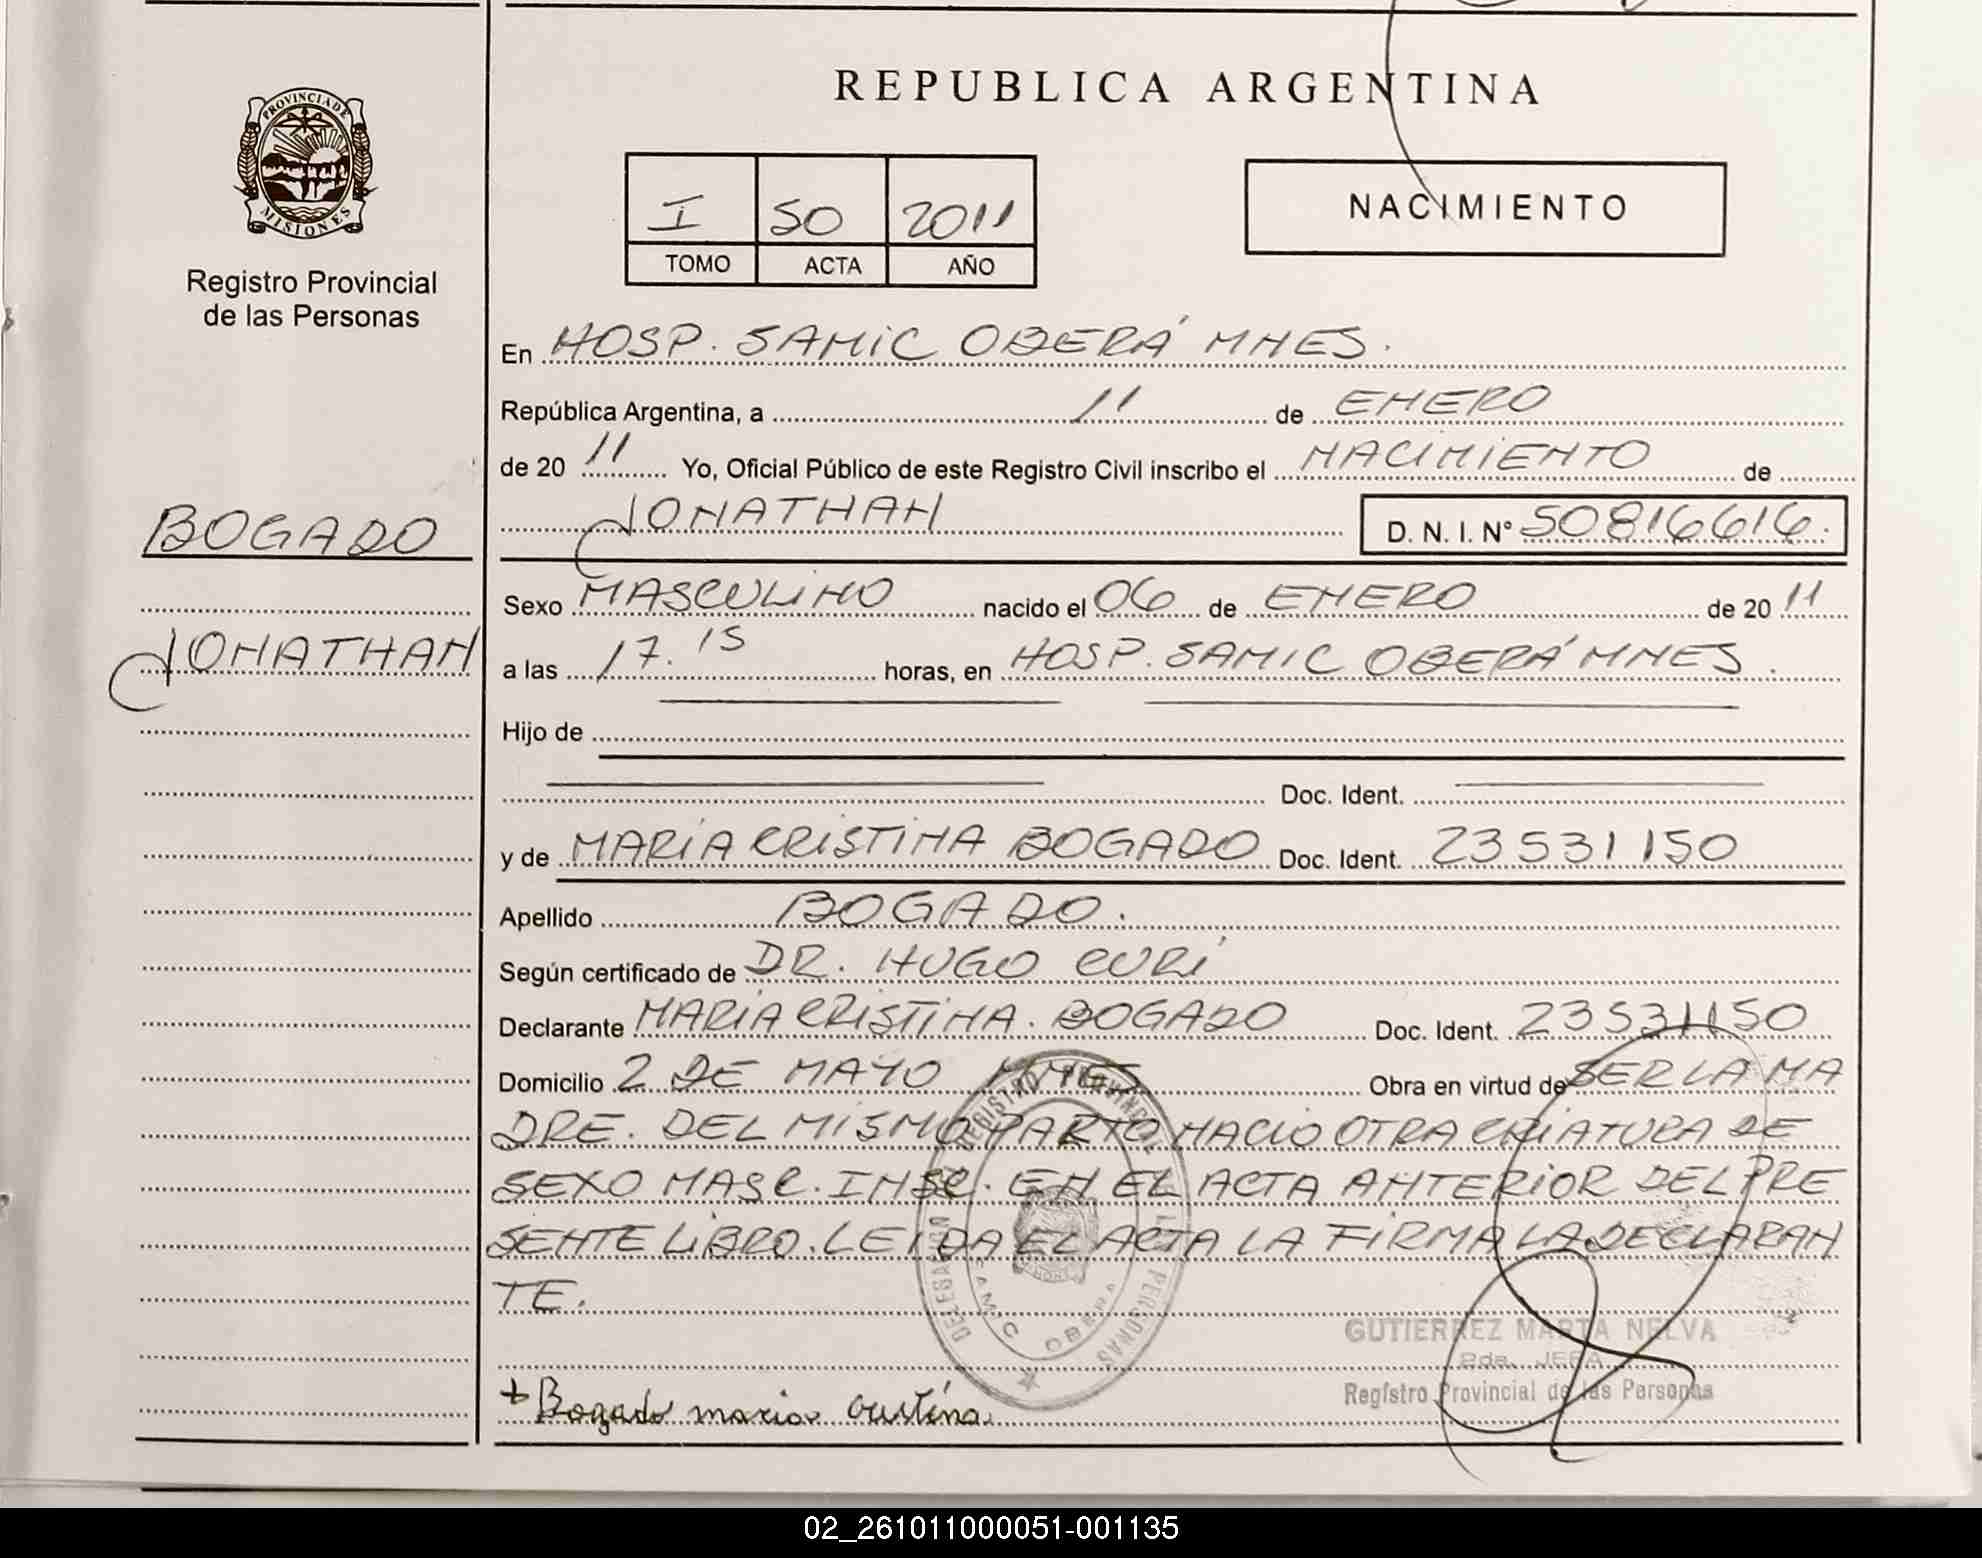 REPUBLICA ARGENTINA
PROVINCIA DE
MISIONES
Registro Provincial
de las Personas
I 50 2011
TOMO ACTA AÑO
NACIMIENTO
En HOSP. SAMIC OBERÁ MNES.
República Argentina, a 11 de ENERO
de 20 11 Yo, Oficial Público de este Registro Civil inscribo el NACIMIENTO de
JONATHAN D. N. I. N° 50816616.
BOGADO
JONATHAN
Sexo MASCULINO nacido el 06 de ENERO de 20 11
a las 17.15 horas, en HOSP. SAMIC OBERÁ MNES.
Hijo de
Doc. Ident.
y de MARIA CRISTINA BOGADO Doc. Ident. 23531150
Apellido BOGADO.
Según certificado de DR. HUGO CURI
Declarante MARIA CRISTINA. BOGADO Doc. Ident. 23531150
Domicilio 2 DE MAYO MNES Obra en virtud de SER LA MA
DRE. DEL MISMO PARTO NACIO OTRA CRIATURA DE
SEXO MASC. INSC. EN EL ACTA ANTERIOR DEL PRE
SENTE LIBRO. LEIDA EL ACTA LA FIRMA LA DECLARAN
TE.
DELEGACION REGISTRO PROVINCIAL DE LAS PERSONAS
SAMIC OBERA
GUTIERREZ MARTA NELVA
2da. JEFA
Registro Provincial de las Personas
+ Bogado maria cristina
02_261011000051-001135